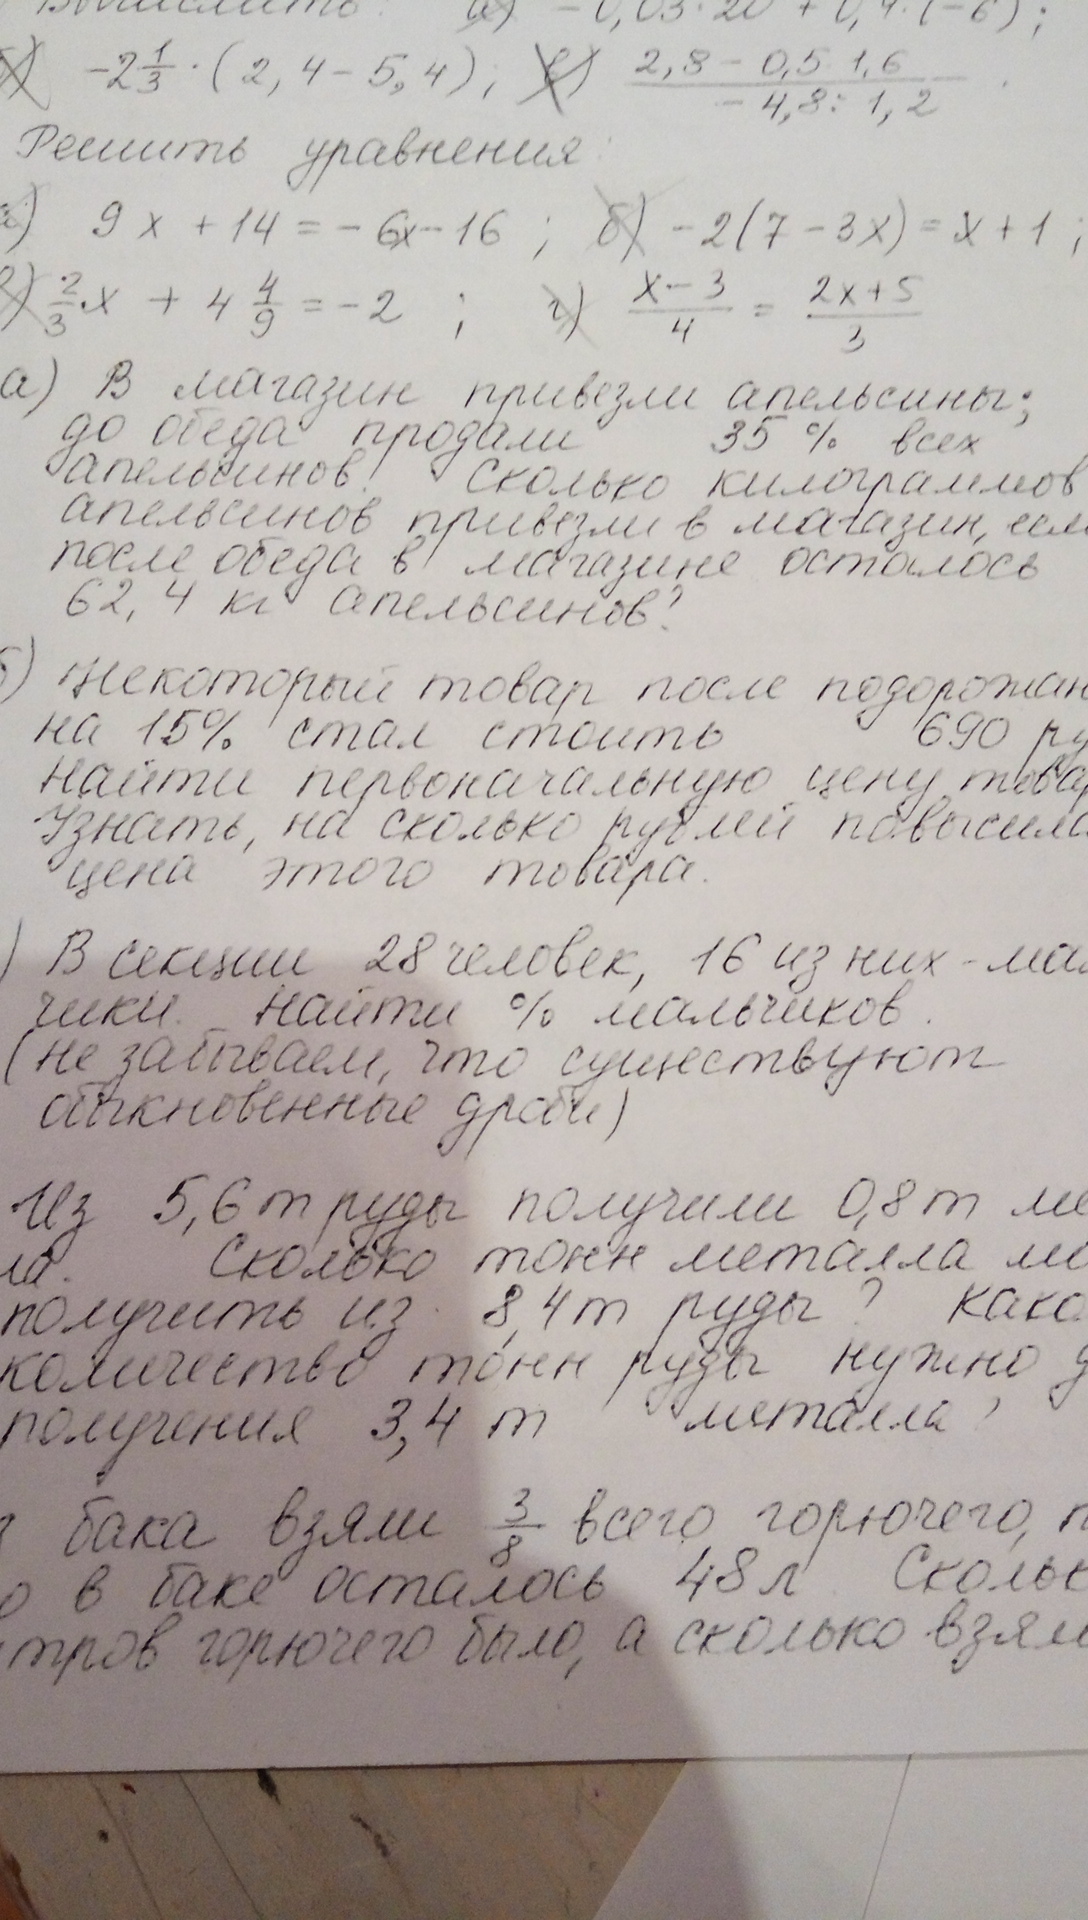 Вычислить: а) -0,03·20 + 0,4·(-6);
б) -2 1/3 · (2,4 - 5,4); в) (2,8 - 0,5·1,6)/(-4,8 : 1,2).
Решить уравнения:
а) 9x + 14 = -6x - 16; б) -2(7 - 3x) = x + 1;
в) 2/3 x + 4 4/9 = -2; г) (x - 3)/4 = (2x + 5)/3
а) В магазин привезли апельсины;
до обеда продали 35% всех
апельсинов. Сколько килограммов
апельсинов привезли в магазин, есл
после обеда в магазине осталось
62,4 кг апельсинов?
б) Некоторый товар после подорожан
на 15% стал стоить 690 ру
Найти первоначальную цену товар
Узнать, на сколько рублей повысила
цена этого товара.
) В секции 28 человек, 16 из них - мал
чики. Найти % мальчиков.
(не забываем, что существуют
обыкновенные дроби)
Из 5,6 т руды получили 0,8 т ме
ла. Сколько тонн металла мо
получить из 8,4 т руды? Како
количество тонн руды нужно д
получения 3,4 т металла?
бака взяли 3/8 всего горючего, п
о в баке осталось 48 л. Скольк
тров горючего было, а сколько взял